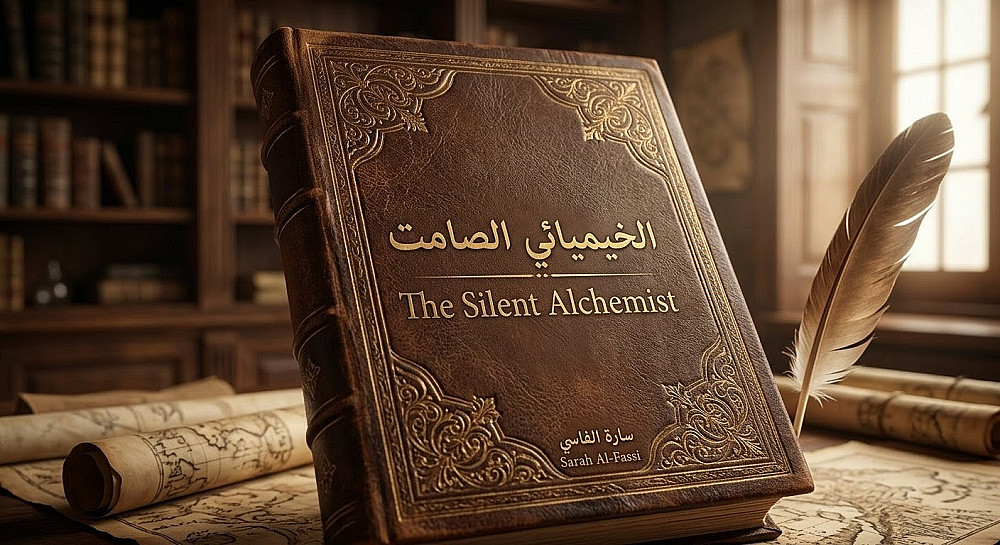 الخيميائي الصامت
The Silent Alchemist
سارة الفاسي
Sarah Al-Fassi